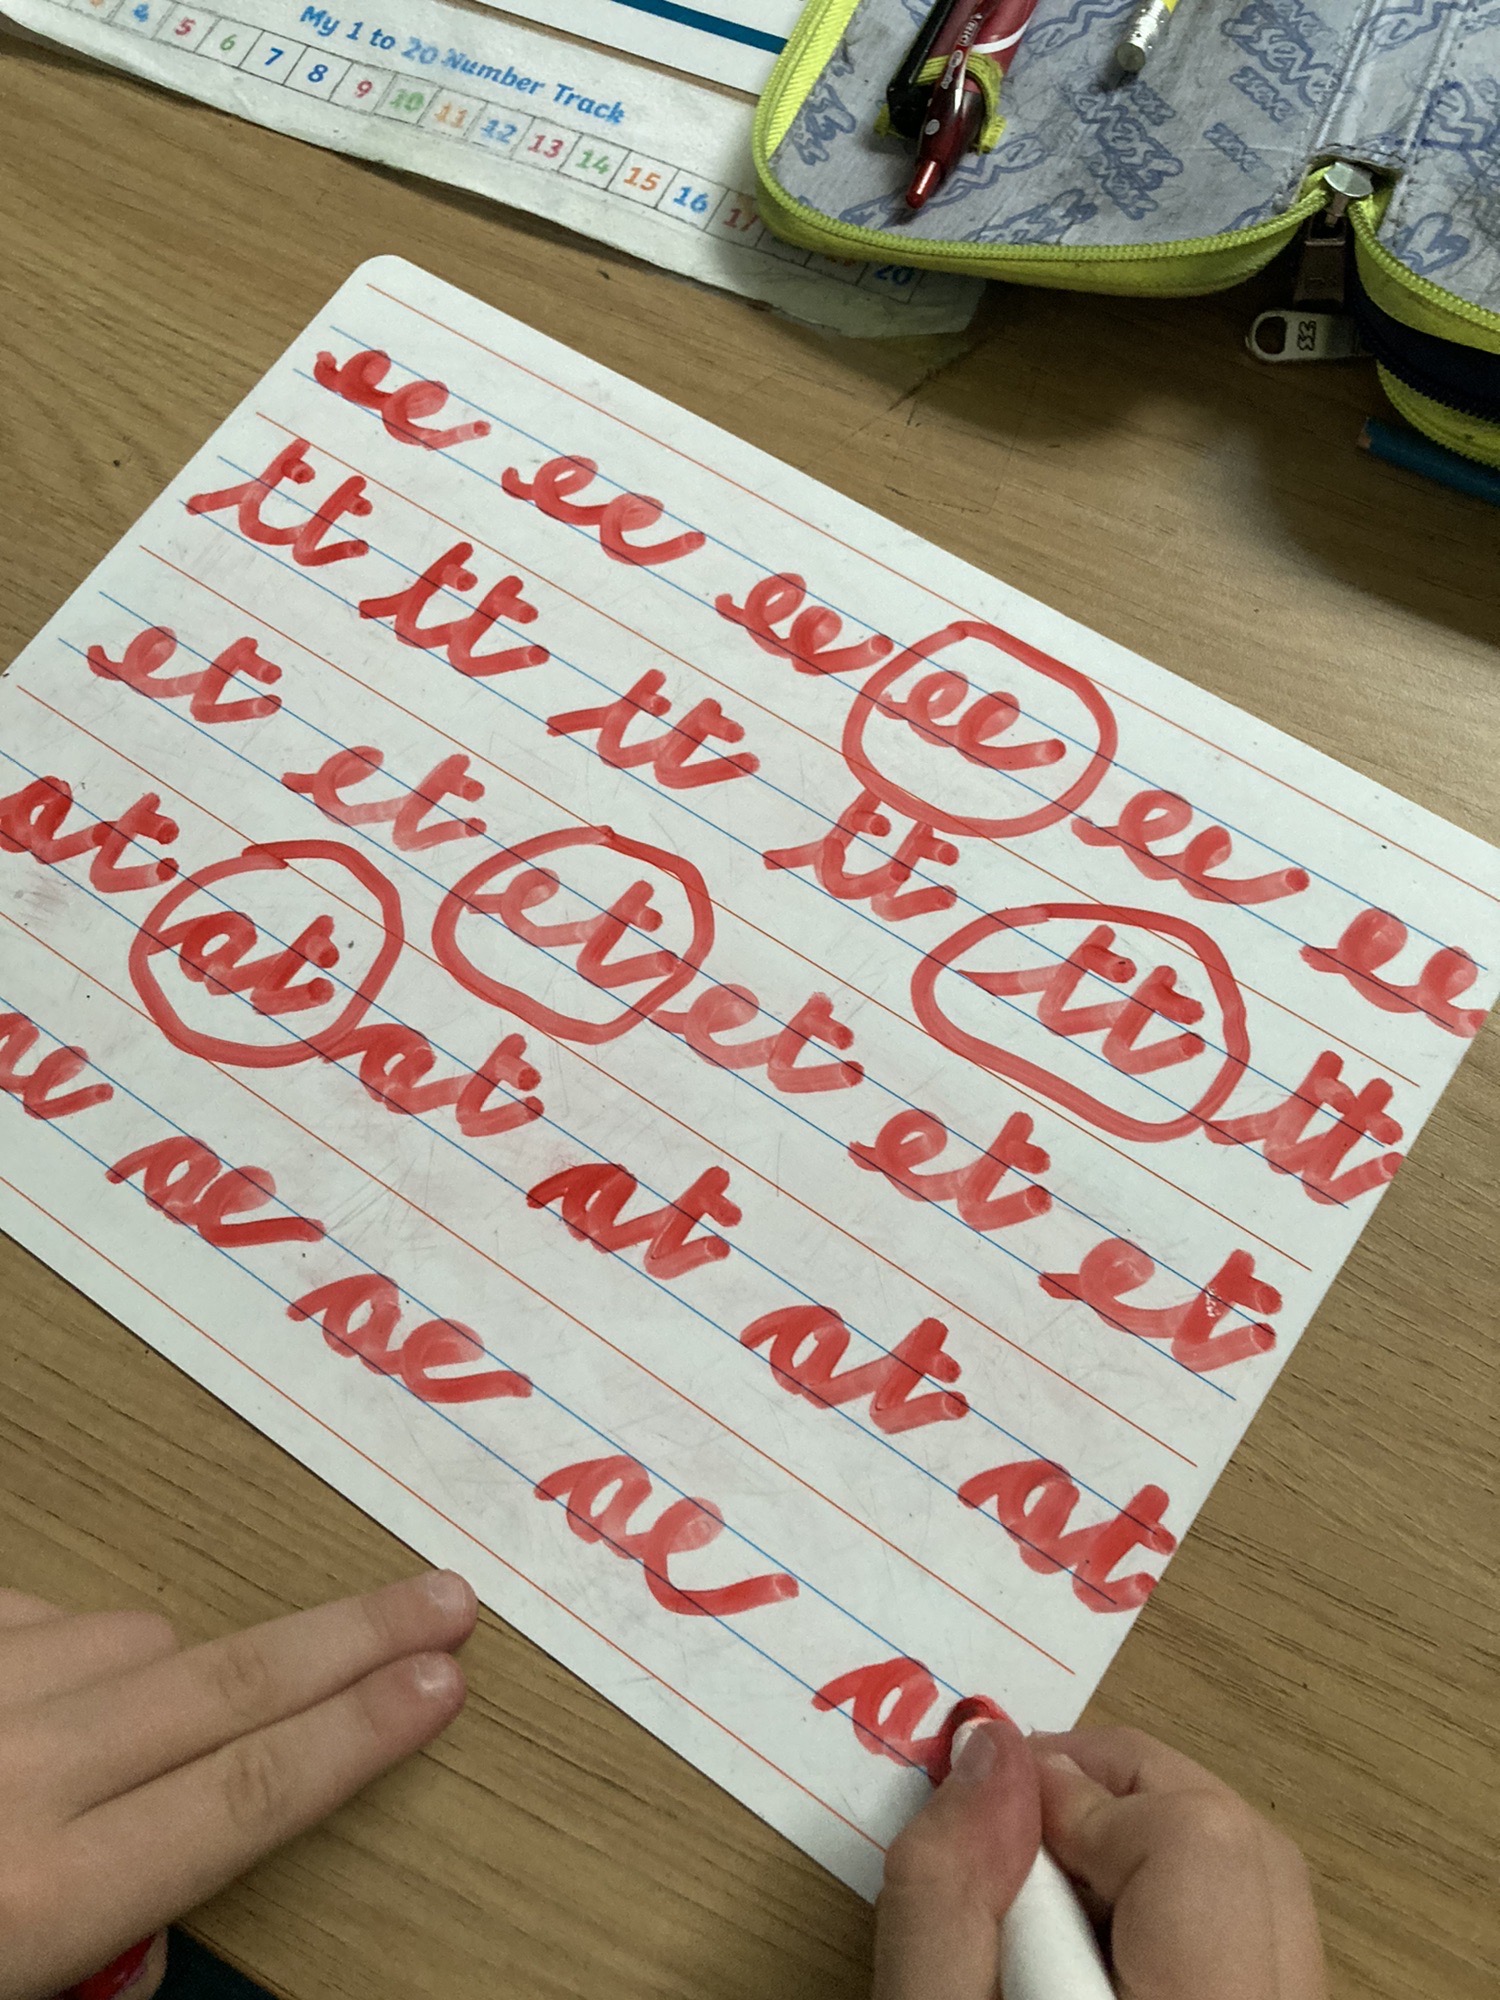 My 1 to 20 Number Track
4 5 6 7 8 9 10 11 12 13 14 15 16 17 20
ee ee ee ee ee ee
tt tt tt tt tt tt
et et et et et et
at at at at at at
ae ae ae ae a